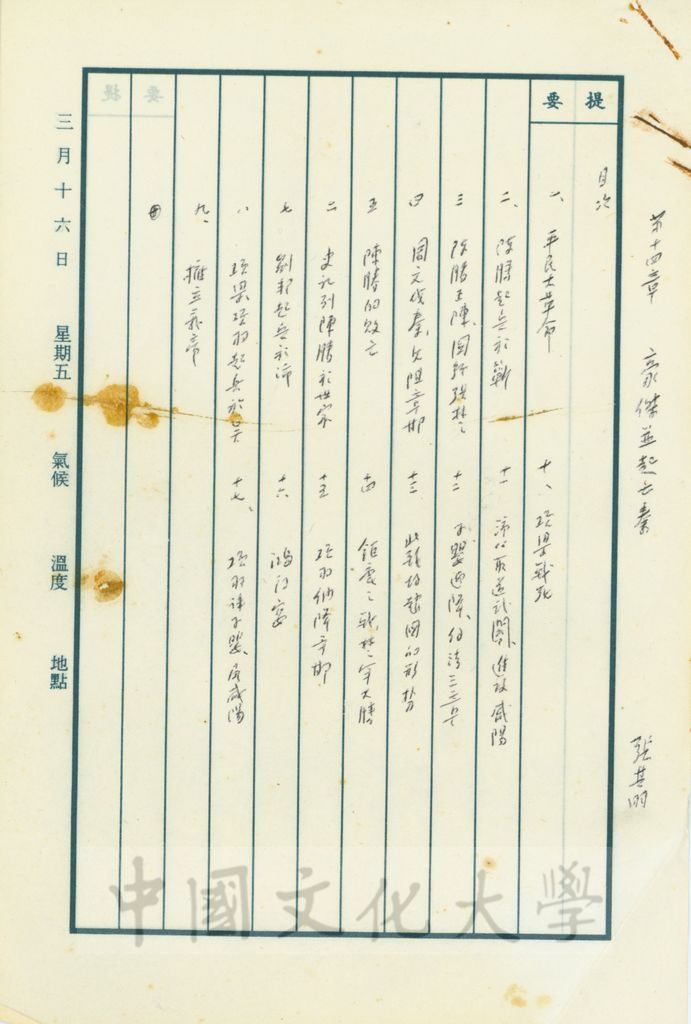 第十四章 豪傑並起亡秦 張其昀
提要
目次
一、平民大革命
二、陳勝起兵於蘄
三 陳勝王陳,國號張楚
四 周文伐秦,欠阻章邯
五 陳勝的敗亡
史記列陳勝於世家
七 劉邦起兵於沛
八 項梁項羽起兵於吳
九、擁立義帝
十、項梁戰死
十一 沛公取道武關,進攻咸陽
十二 子嬰迎降,約法三章
十三 此戰均
十四 鉅鹿之戰,楚軍大勝
十五 項羽納降章邯
十六 鴻門宴
十七、項羽誅子嬰,屠咸陽
要提
三月十六日 星期五 氣候 溫度 地點
中國文化大學